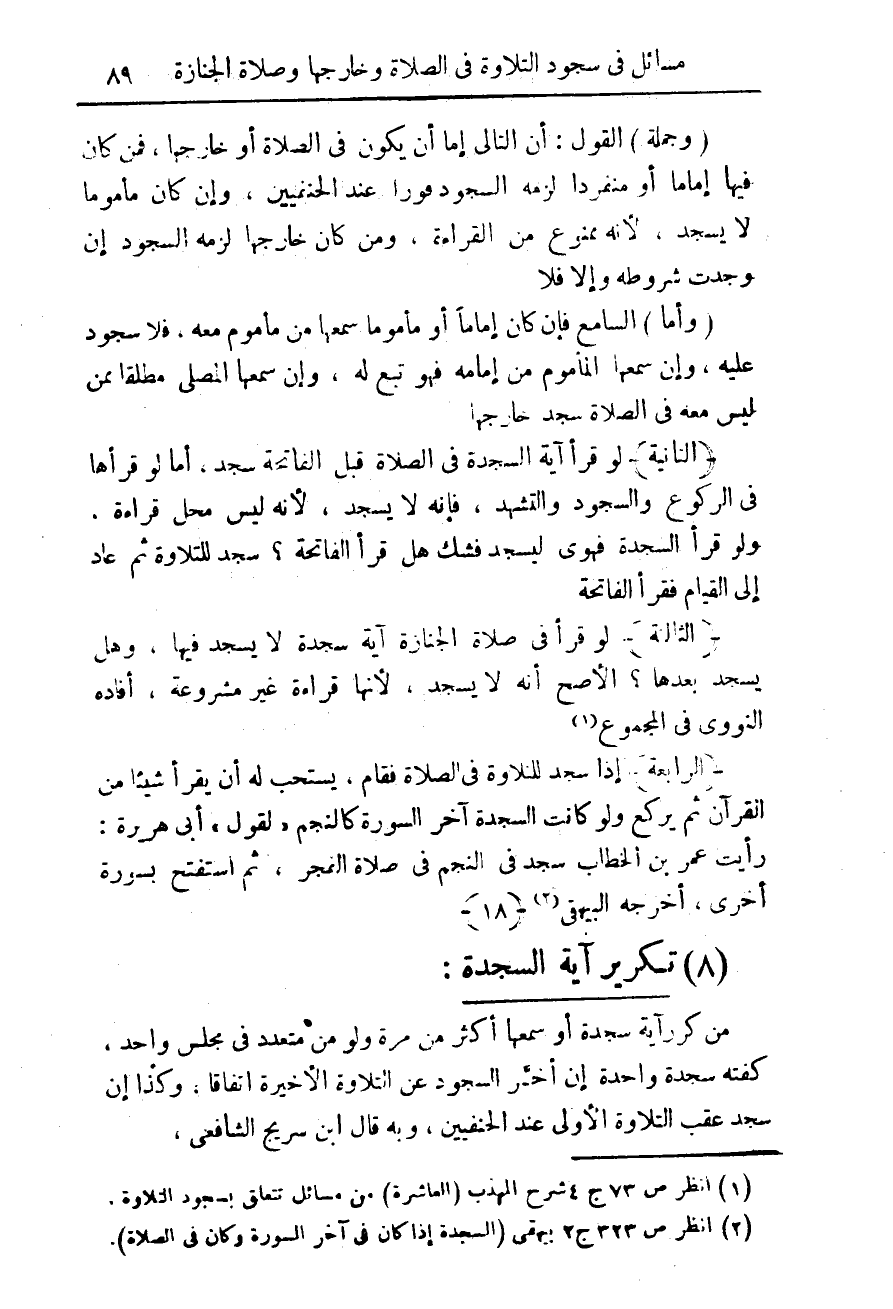 مسائل فى سجود التلاوة فى الصلاة وخارجها وصلاة الجنازة ٨٩
( وجملة ) القول : أن التالى إما أن يكون فى الصلاة أو خارجها ، فمن كان
فيها إماما أو منفردا لزمه السجود فورا عند الحنفيين ، وإن كان مأموما
لا يسجد ، لأنه ممنوع من القراءة ، ومن كان خارجها لزمه السجود إن
وجدت شروطه وإلا فلا
( وأما ) السامع فإن كان إماماً أو مأموما سمعها من مأموم معه ، فلا سجود
عليه ، وإن سمعها المأموم من إمامه فهو تبع له ، وإن سمعها المصلى مطلقا ممن
ليس معه فى الصلاة سجد خارجها
﴿الثانية﴾ لو قرأ آية السجدة فى الصلاة قبل الفاتحة سجد ، أما لو قرأها
فى الركوع والسجود والتشهد ، فإنه لا يسجد ، لأنه ليس محل قراءة .
ولو قرأ السجدة فهوى ليسجد فشك هل قرأ الفاتحة ؟ سجد للتلاوة ثم عاد
إلى القيام فقرأ الفاتحة
﴿الثالثة﴾ لو قرأ فى صلاة الجنازة آية سجدة لا يسجد فيها ، وهل
يسجد بعدها ؟ الأصح أنه لا يسجد ، لأنها قراءة غير مشروعة ، أفاده
النووى فى المجموع (١)
﴿الرابعة﴾ إذا سجد للتلاوة فى الصلاة فقام ، يستحب له أن يقرأ شيئا من
القرآن ثم يركع ولو كانت السجدة آخر السورة كالنجم « لقول » أبى هريرة :
رأيت عمر بن الخطاب سجد فى النجم فى صلاة الفجر ، ثم استفتح بسورة
أخرى ، أخرجه البيهقى (٢) ﴿١٨﴾
(٨) تكرير آية السجدة :
من كرر آية سجدة أو سمعها أكثر من مرة ولو من متعدد فى مجلس واحد ،
كفته سجدة واحدة إن أخّر السجود عن التلاوة الأخيرة اتفاقا ، وكذا إن
سجد عقب التلاوة الأولى عند الحنفيين ، وبه قال ابن سريج الشافعى ،
(١) انظر ص ٧٣ ج ٤ شرح المهذب (العاشرة) من مسائل تتعلق بسجود التلاوة .
(٢) انظر ص ٣٢٣ ج ٢ بيهقى (السجدة إذا كان فى آخر السورة وكان فى الصلاة).